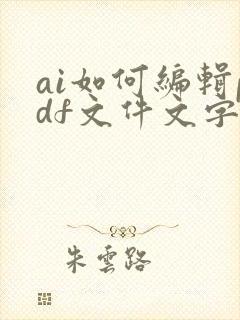 ai如何編輯p
df文件文字
朱雲路